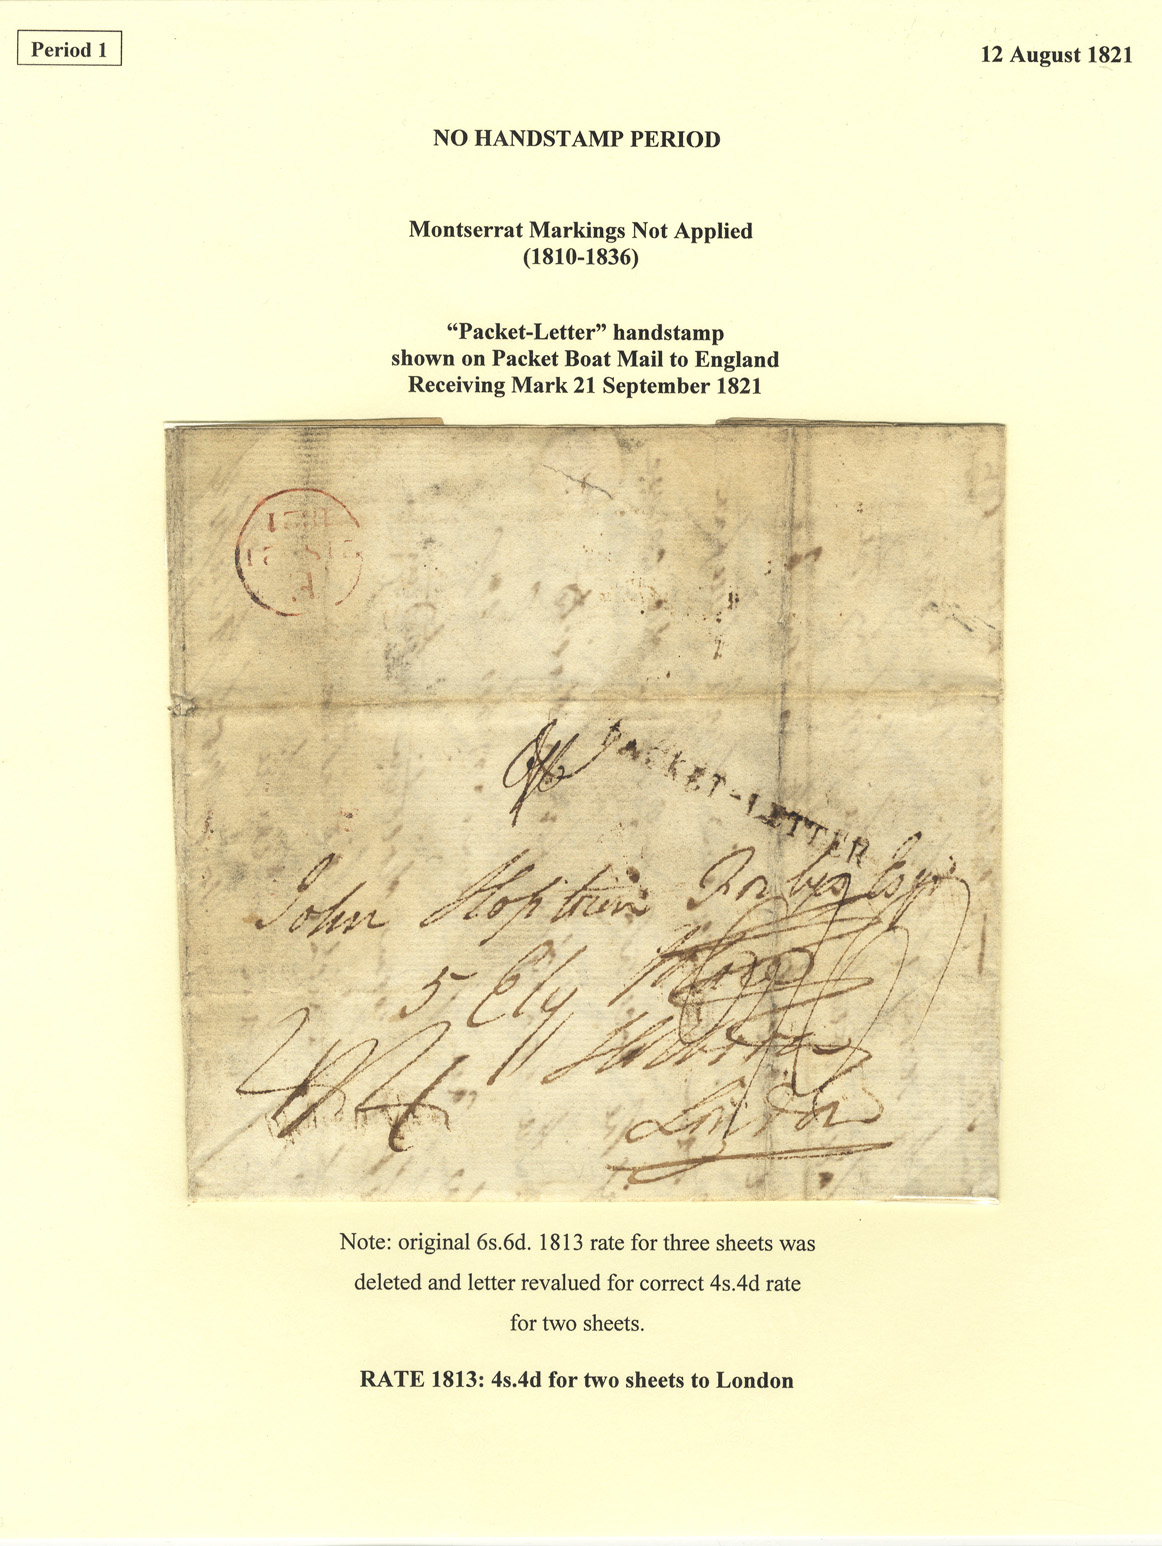 Period 1
12 August 1821
NO HANDSTAMP PERIOD
Montserrat Markings Not Applied
(1810-1836)
“Packet-Letter” handstamp
shown on Packet Boat Mail to England
Receiving Mark 21 September 1821
PACKET-LETTER
John Hopton Forbes Esqr
5 Ely Place
Holborn
London
4/4
Note: original 6s.6d. 1813 rate for three sheets was
deleted and letter revalued for correct 4s.4d rate
for two sheets.
RATE 1813: 4s.4d for two sheets to London